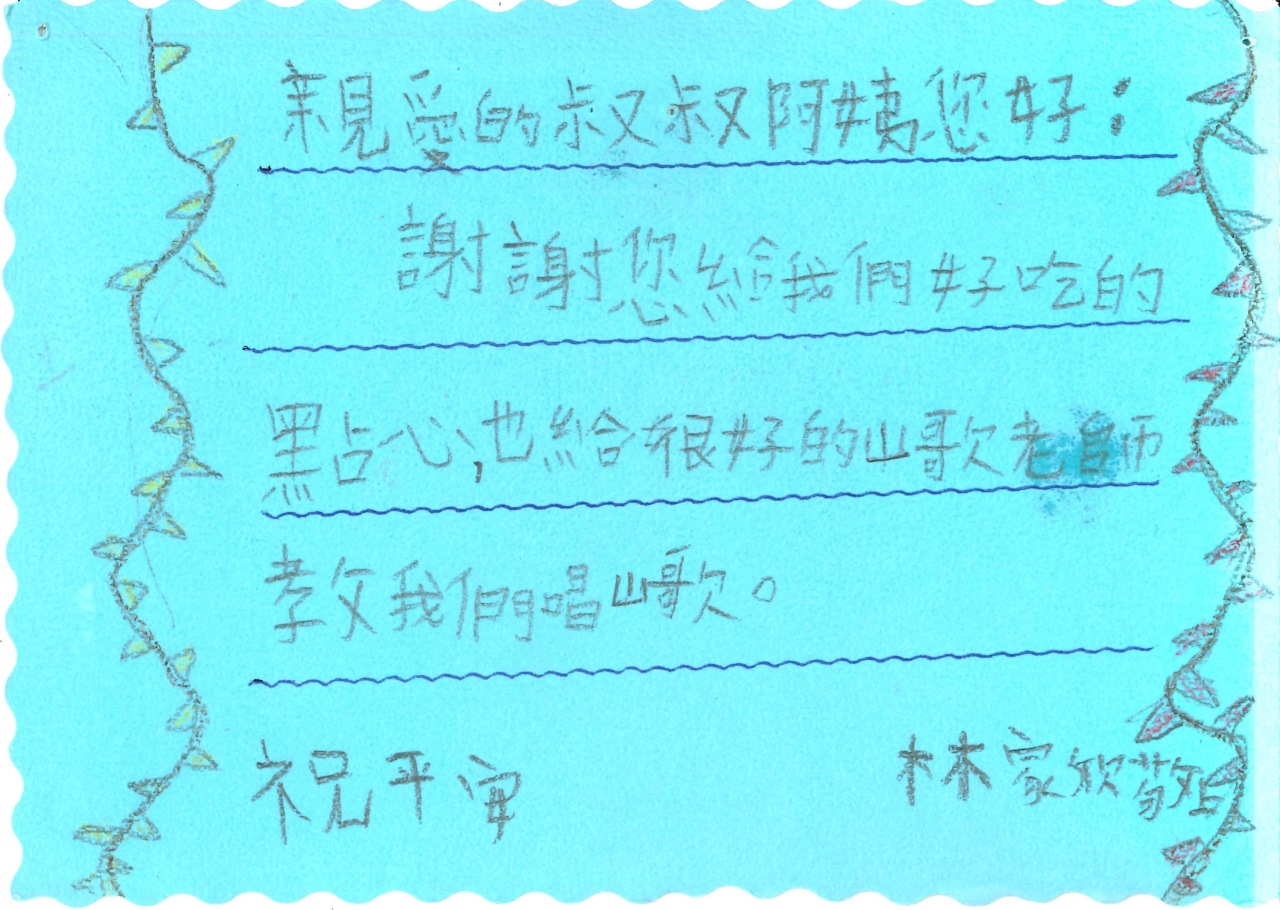 親愛的叔叔阿姨您好：
謝謝您給我們好吃的
點心，也給很好的山歌老師
教我們唱山歌。
祝平安
林家欣敬啟